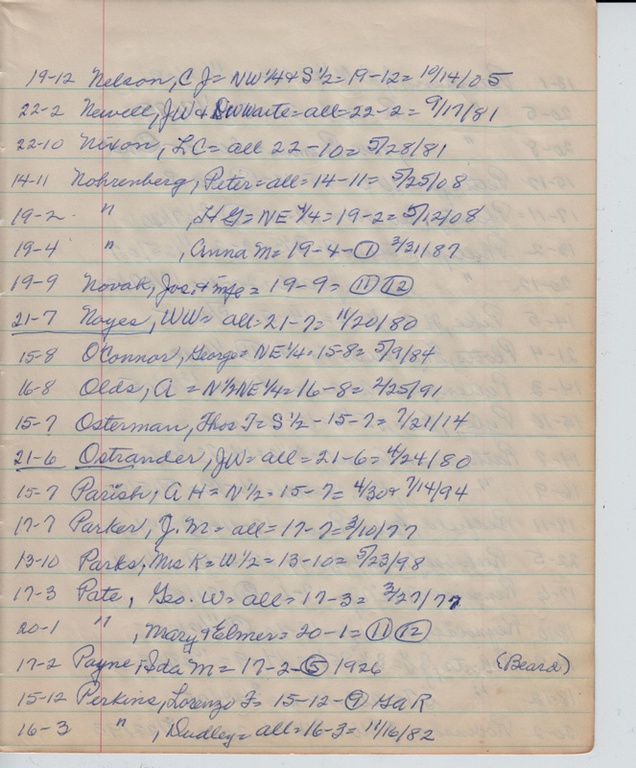 19-12 Nelson, C J = NW 1/4 & S 1/2 = 19-12 = 10/14/05
22-2 Newell, JW & DW Waite = all = 22-2 = 9/17/81
22-10 Nixon, L C = all 22-10 = 5/28/81
14-11 Nohrenberg, Peter = all = 14-11 = 5/25/08
19-2 " , H G = NE 1/4 = 19-2 = 5/12/08
19-4 " , Anna M = 19-4-① 3/31/87
19-9 Novak, Jos. & wife = 19-9 = ⑪ ⑫
21-7 Noyes, WW = all = 21-7 = 11/20/80
15-8 O'Connor, George = NE 1/4 = 15-8 = 5/9/84
16-8 Olds, A = N 1/2 NE 1/4 = 16-8 = 2/25/91
15-7 Osterman, Thos T = S 1/2 - 15-7 = 7/21/14
21-6 Ostrander, JW = all = 21-6 = 4/24/80
15-7 Parish, A H = N 1/2 = 15-7 = 4/30 & 7/14/94
17-7 Parker, J. M = all = 17-7 = 3/10/77
13-10 Parks, Mrs K = W 1/2 = 13-10 = 5/23/98
17-3 Pate, Geo. W = all = 17-3 = 3/27/77
20-1 " , Mary & Elmer = 20-1 = ⑪ ⑫
17-2 Payne, Ida M = 17-2-⑤ 1926 (Beard)
15-12 Perkins, Lorenzo F = 15-12-⑨ GaR
16-3 " , Dudley = all = 16-3 = 11/16/82